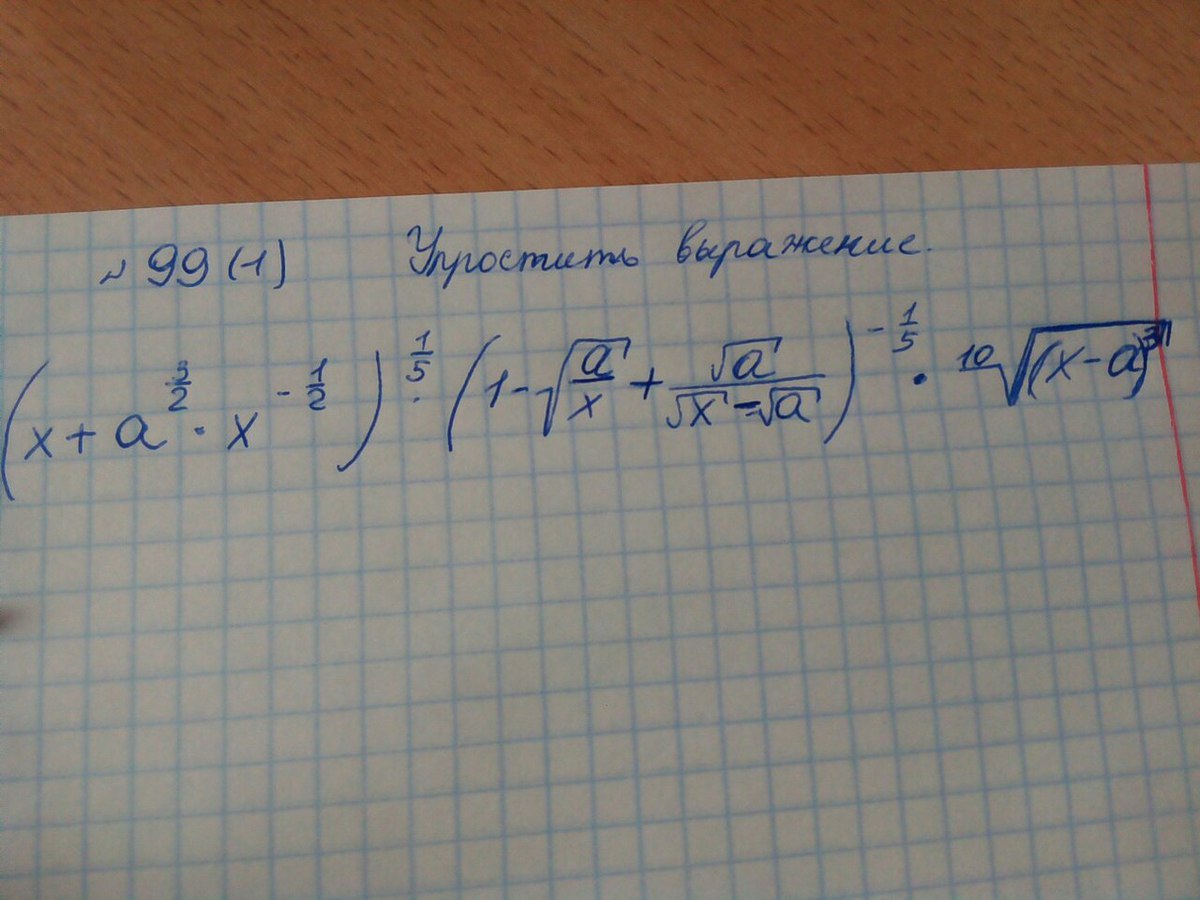 № 99 (1) Упростить выражение.
(x + a^{3/2} · x^{-1/2})^{1/5} · (1 - √(a/x) + √a/(√x - √a))^{-1/5} · ¹⁰√((x - a)³)